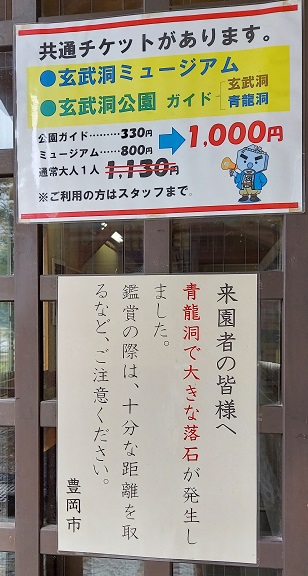 共通チケットがあります。
●玄武洞ミュージアム
●玄武洞公園 ガイド 玄武洞
青龍洞
公園ガイド………330円
ミュージアム……800円
通常大人1人 1,130円
1,000円
※ご利用の方はスタッフまで。
来園者の皆様へ
青龍洞で大きな落石が発生し
ました。
鑑賞の際は、十分な距離を取
るなど、ご注意ください。
豊岡市